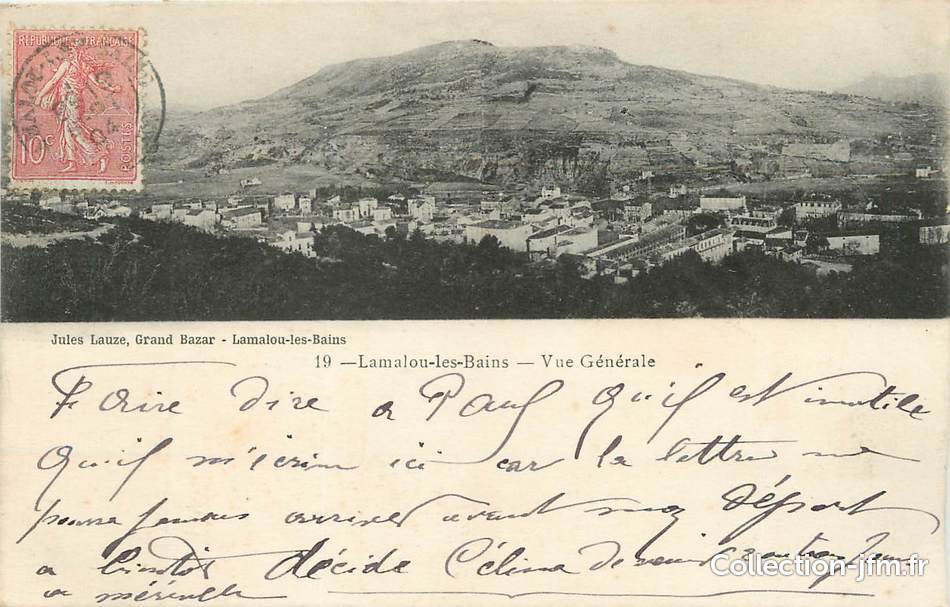 REPUBLIQUE FRANÇAISE
10c POSTES
Jules Lauze, Grand Bazar - Lamalou-les-Bains
19 — Lamalou-les-Bains — Vue Générale
Faire dire a Paul qu'il est inutile
Qu'il m'écrive ici car la lettre ne
pourra jamais arriver avant mon Départ
a bientôt décide Célina De venir
a
Collection-jfm.fr